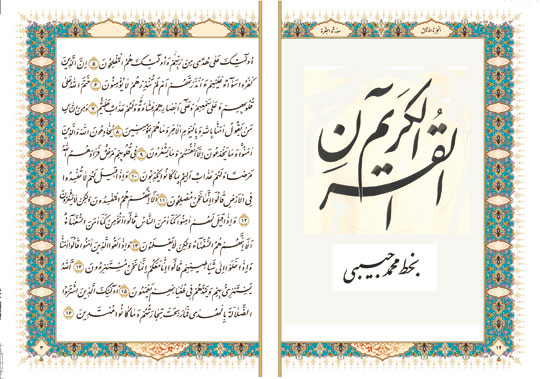 الجزء الأول
سورة البقرة
القرآن الكريم
بخط محمد حبیبی
١٢
أولئك على هدى من ربهم وأولئك هم المفلحون ٥ إن الذين
كفروا سواء عليهم أأنذرتهم أم لم تنذرهم لا يؤمنون ٦ ختم الله على
قلوبهم وعلى سمعهم وعلى أبصارهم غشاوة ولهم عذاب عظيم ٧ ومن الناس
من يقول آمنا بالله وباليوم الآخر وما هم بمؤمنين ٨ يخادعون الله والذين
آمنوا وما يخدعون إلا أنفسهم وما يشعرون ٩ في قلوبهم مرض فزادهم الله
مرضا ولهم عذاب أليم بما كانوا يكذبون ١٠ وإذا قيل لهم لا تفسدوا
في الأرض قالوا إنما نحن مصلحون ١١ ألا إنهم هم المفسدون ولكن لا يشعرون
١٢ وإذا قيل لهم آمنوا كما آمن الناس قالوا أنؤمن كما آمن السفهاء
ألا إنهم هم السفهاء ولكن لا يعلمون ١٣ وإذا لقوا الذين آمنوا قالوا آمنا
وإذا خلوا إلى شياطينهم قالوا إنا معكم إنما نحن مستهزءون ١٤ الله
يستهزئ بهم ويمدهم في طغيانهم يعمهون ١٥ أولئك الذين اشتروا
الضلالة بالهدى فما ربحت تجارتهم وما كانوا مهتدين ١٦